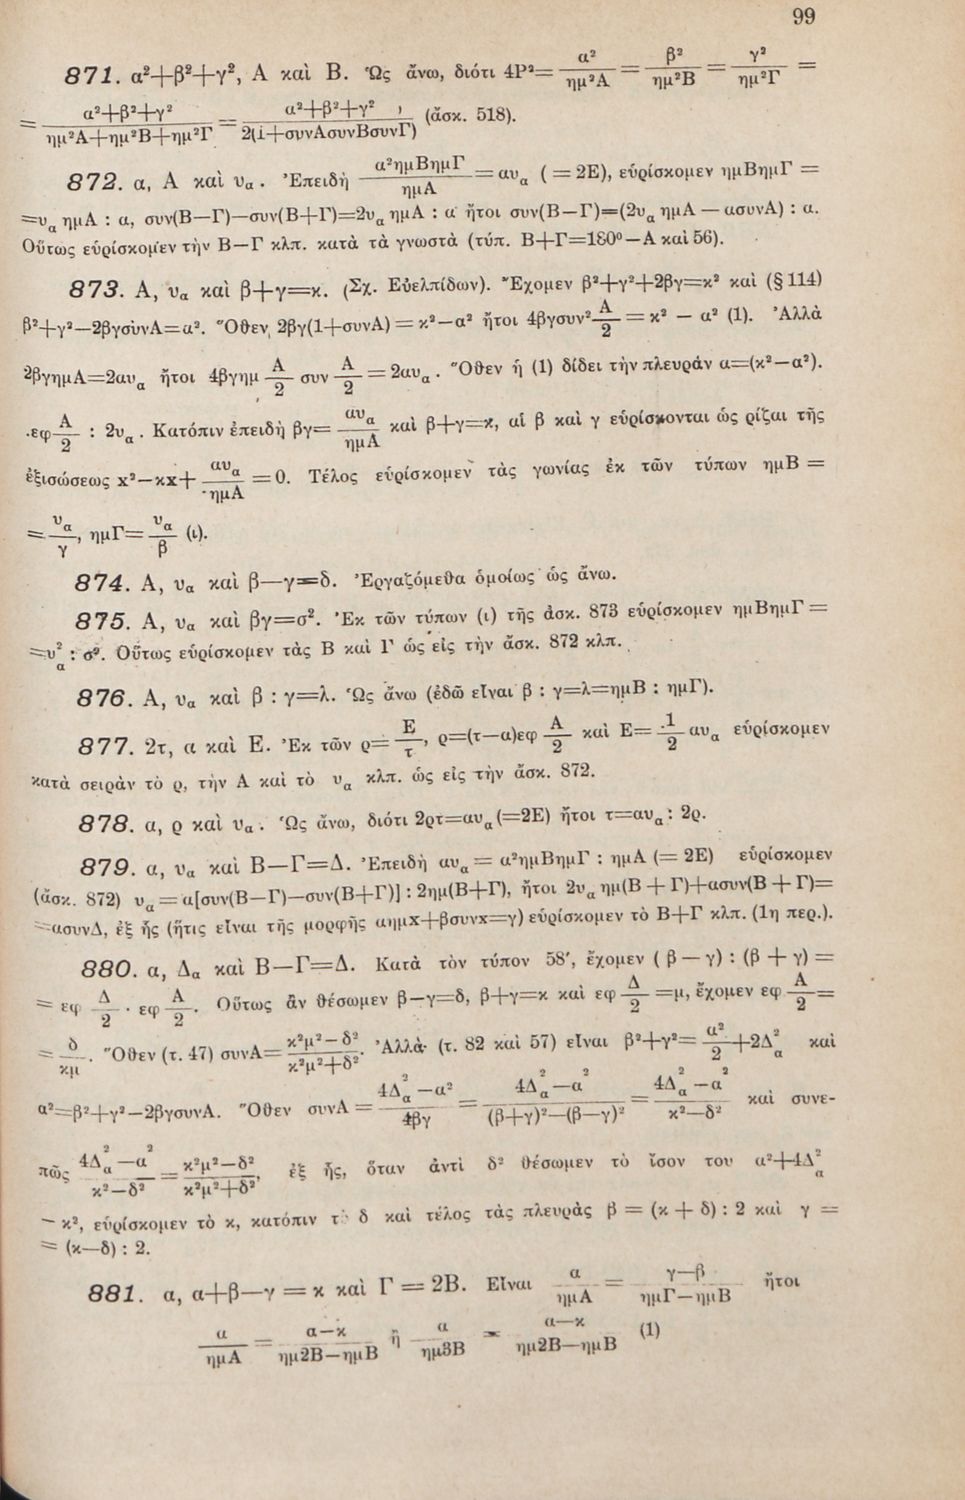 99
871. α²+β²+γ², Α καὶ Β. Ὡς ἄνω, διότι 4Ρ²= α²/ημ²Α = β²/ημ²Β = γ²/ημ²Γ =
= (α²+β²+γ²)/(ημ²Α+ημ²Β+ημ²Γ) = (α²+β²+γ²)/(2(1+συνΑσυνΒσυνΓ)) (ἄσκ. 518).
872. α, Α καὶ υα. Ἐπειδὴ α²ημΒημΓ/ημΑ = αυα ( = 2Ε), εὑρίσκομεν ημΒημΓ =
=υα ημΑ : α, συν(Β—Γ)—συν(Β+Γ)=2υα ημΑ : α ἤτοι συν(Β—Γ)=(2υα ημΑ — ασυνΑ) : α.
Οὕτως εὑρίσκομεν τὴν Β—Γ κλπ. κατὰ τὰ γνωστὰ (τύπ. Β+Γ=180°—Α καὶ 56).
873. Α, υα καὶ β+γ=κ. (Σχ. Εὐελπίδων). Ἔχομεν β²+γ²+2βγ=κ² καὶ (§ 114)
β²+γ²—2βγσυνΑ=α². Ὅθεν, 2βγ(1+συνΑ) = κ²—α² ἤτοι 4βγσυν² Α/2 = κ² — α² (1). Ἀλλὰ
2βγημΑ=2αυα ἤτοι 4βγημ Α/2 συν Α/2 = 2αυα. Ὅθεν ἡ (1) δίδει τὴν πλευράν α=(κ²—α²).
.εφ Α/2 : 2υα. Κατόπιν ἐπειδὴ βγ= αυα/ημΑ καὶ β+γ=κ, αἱ β καὶ γ εὑρίσκονται ὡς ρίζαι τῆς
ἐξισώσεως χ²—κχ+ αυα/ημΑ = 0. Τέλος εὑρίσκομεν τὰς γωνίας ἐκ τῶν τύπων ημΒ =
= υα/γ, ημΓ= υα/β (ι).
874. Α, υα καὶ β—γ=δ. Ἐργαζόμεθα ὁμοίως ὡς ἄνω.
875. Α, υα καὶ βγ=σ². Ἐκ τῶν τύπων (ι) τῆς ἀσκ. 873 εὑρίσκομεν ημΒημΓ =
=υ²α : σ². Οὕτως εὑρίσκομεν τὰς Β καὶ Γ ὡς εἰς τὴν ἄσκ. 872 κλπ.
876. Α, υα καὶ β : γ=λ. Ὡς ἄνω (ἐδῶ εἶναι β : γ=λ=ημΒ : ημΓ).
877. 2τ, α καὶ Ε. Ἐκ τῶν ρ= Ε/τ, ρ=(τ—α)εφ Α/2 καὶ Ε= 1/2 αυα εὑρίσκομεν
κατὰ σειρὰν τὸ ρ, τὴν Α καὶ τὸ υα κλπ. ὡς εἰς τὴν ἄσκ. 872.
878. α, ρ καὶ υα. Ὡς ἄνω, διότι 2ρτ=αυα(=2Ε) ἤτοι τ=αυα : 2ρ.
879. α, υα καὶ Β—Γ=Δ. Ἐπειδὴ αυα = α²ημΒημΓ : ημΑ (= 2Ε) εὑρίσκομεν
(ἄσκ. 872) υα = α[συν(Β—Γ)—συν(Β+Γ)] : 2ημ(Β+Γ), ἤτοι 2υα ημ(Β + Γ)+ασυν(Β + Γ)=
=ασυνΔ, ἐξ ἧς (ἥτις εἶναι τῆς μορφῆς αημχ+βσυνχ=γ) εὑρίσκομεν τὸ Β+Γ κλπ. (1η περ.).
880. α, Δα καὶ Β—Γ=Δ. Κατὰ τὸν τύπον 58′, ἔχομεν ( β — γ) : (β + γ) =
= εφ Δ/2 . εφ Α/2. Οὕτως ἂν θέσωμεν β—γ=δ, β+γ=κ καὶ εφ Δ/2 =μ, ἔχομεν εφ Α/2 =
= δ/κμ. Ὅθεν (τ. 47) συνΑ= (κ²μ²—δ²)/(κ²μ²+δ²). Ἀλλὰ (τ. 82 καὶ 57) εἶναι β²+γ²= α²/2 +2Δ²α καὶ
α²=β²+γ²—2βγσυνΑ. Ὅθεν συνΑ = (4Δ²α—α²)/4βγ = (4Δ²α—α²)/((β+γ)²—(β—γ)²) = (4Δ²α—α²)/(κ²—δ²) καὶ συνε-
πῶς (4Δ²α—α²)/(κ²—δ²) = (κ²μ²—δ²)/(κ²μ²+δ²), ἐξ ἧς, ὅταν ἀντὶ δ² θέσωμεν τὸ ἴσον του α²+4Δ²α
— κ², εὑρίσκομεν τὸ κ, κατόπιν τὸ δ καὶ τέλος τὰς πλευρὰς β = (κ + δ) : 2 καὶ γ =
= (κ—δ) : 2.
881. α, α+β—γ = κ καὶ Γ = 2Β. Εἶναι α/ημΑ = (γ—β)/(ημΓ—ημΒ) ἤτοι
α/ημΑ = (α—κ)/(ημ2Β—ημΒ) ἢ α/ημ3Β = (α—κ)/(ημ2Β—ημΒ) (1)